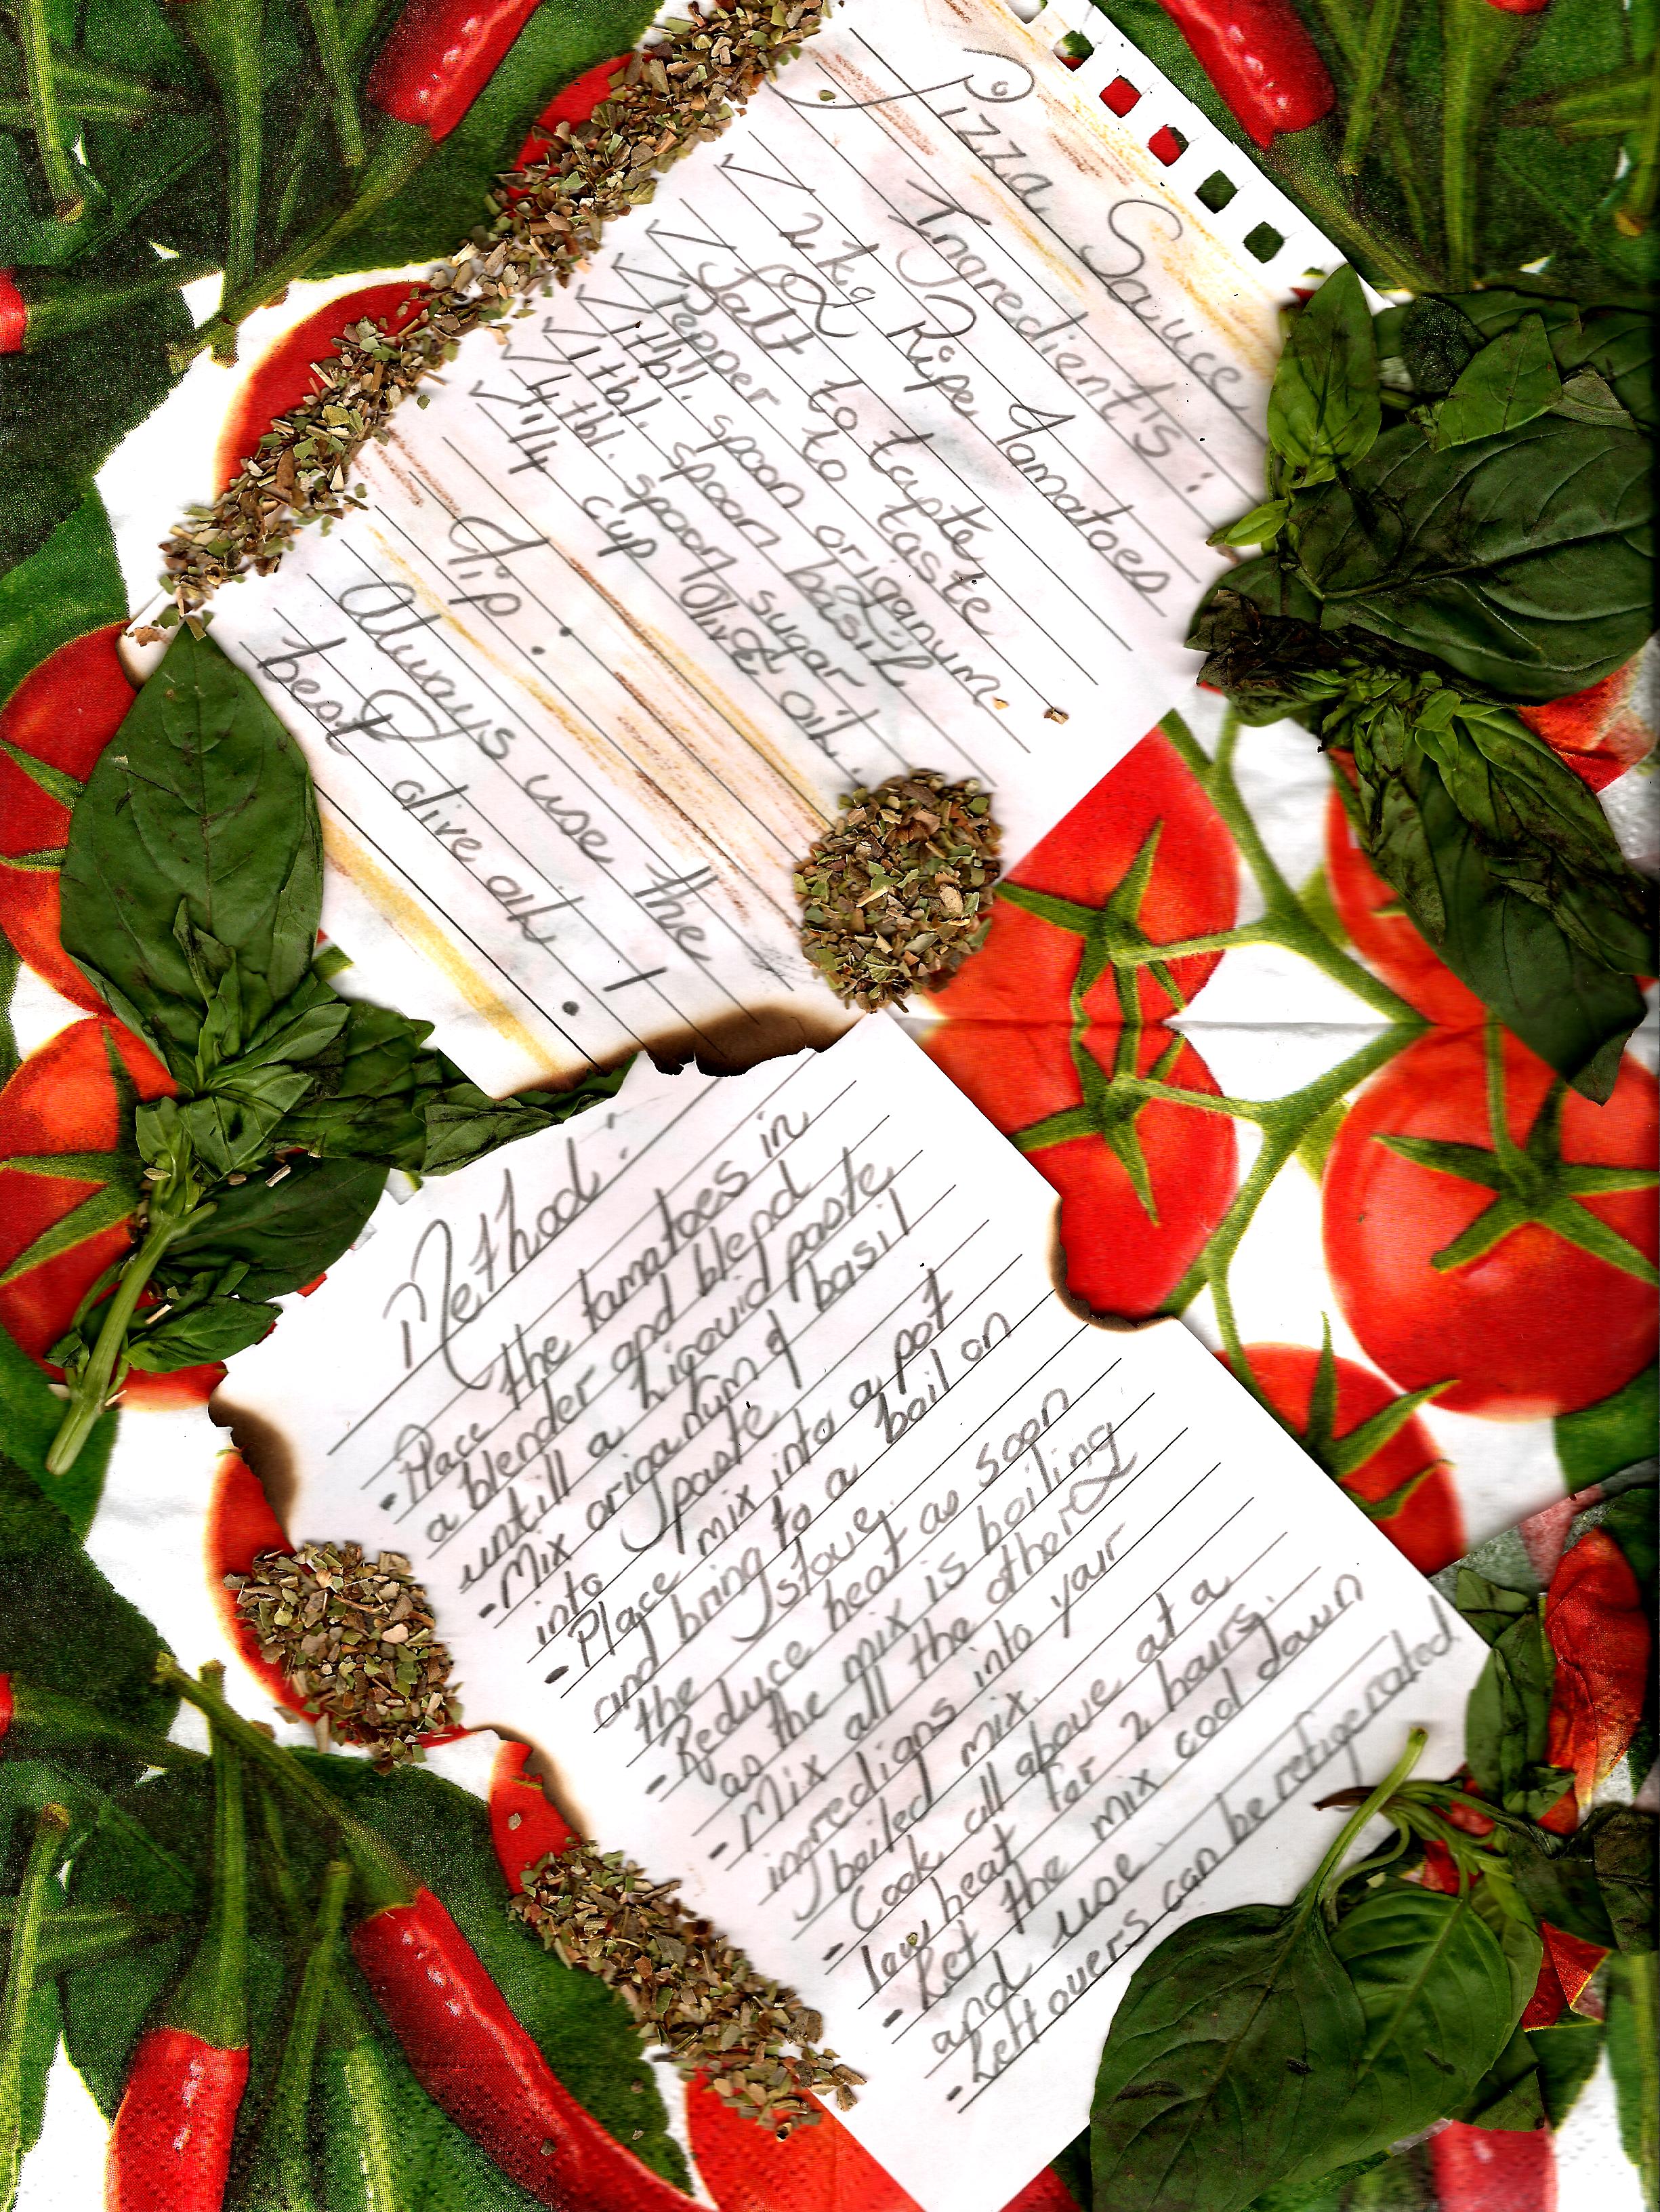 Pizza Sauce
Ingredient's :
2kg Ripe Tomatoes
Salt to tapte
Pepper to taste
1tbl. spoon origanum.
1tbl. spoon basil
4tbl. spoon sugar
1/4 cup Olive oil.
Tip :
Always use the
best olive oil !
Method :
- Place the tomatoes in
a blender and blend
untill a liquid paste
- Mix origanum & basil
into paste
- Place mix into a pot
and bring to a boil on
the stove.
- Reduce heat as soon
as the mix is boiling
- Mix all the other
ingredigns into your
boiled mix.
- Cook all above at a
low heat for 2 hours.
- Let the mix cool down
and use.
- Left overs can be refigerated